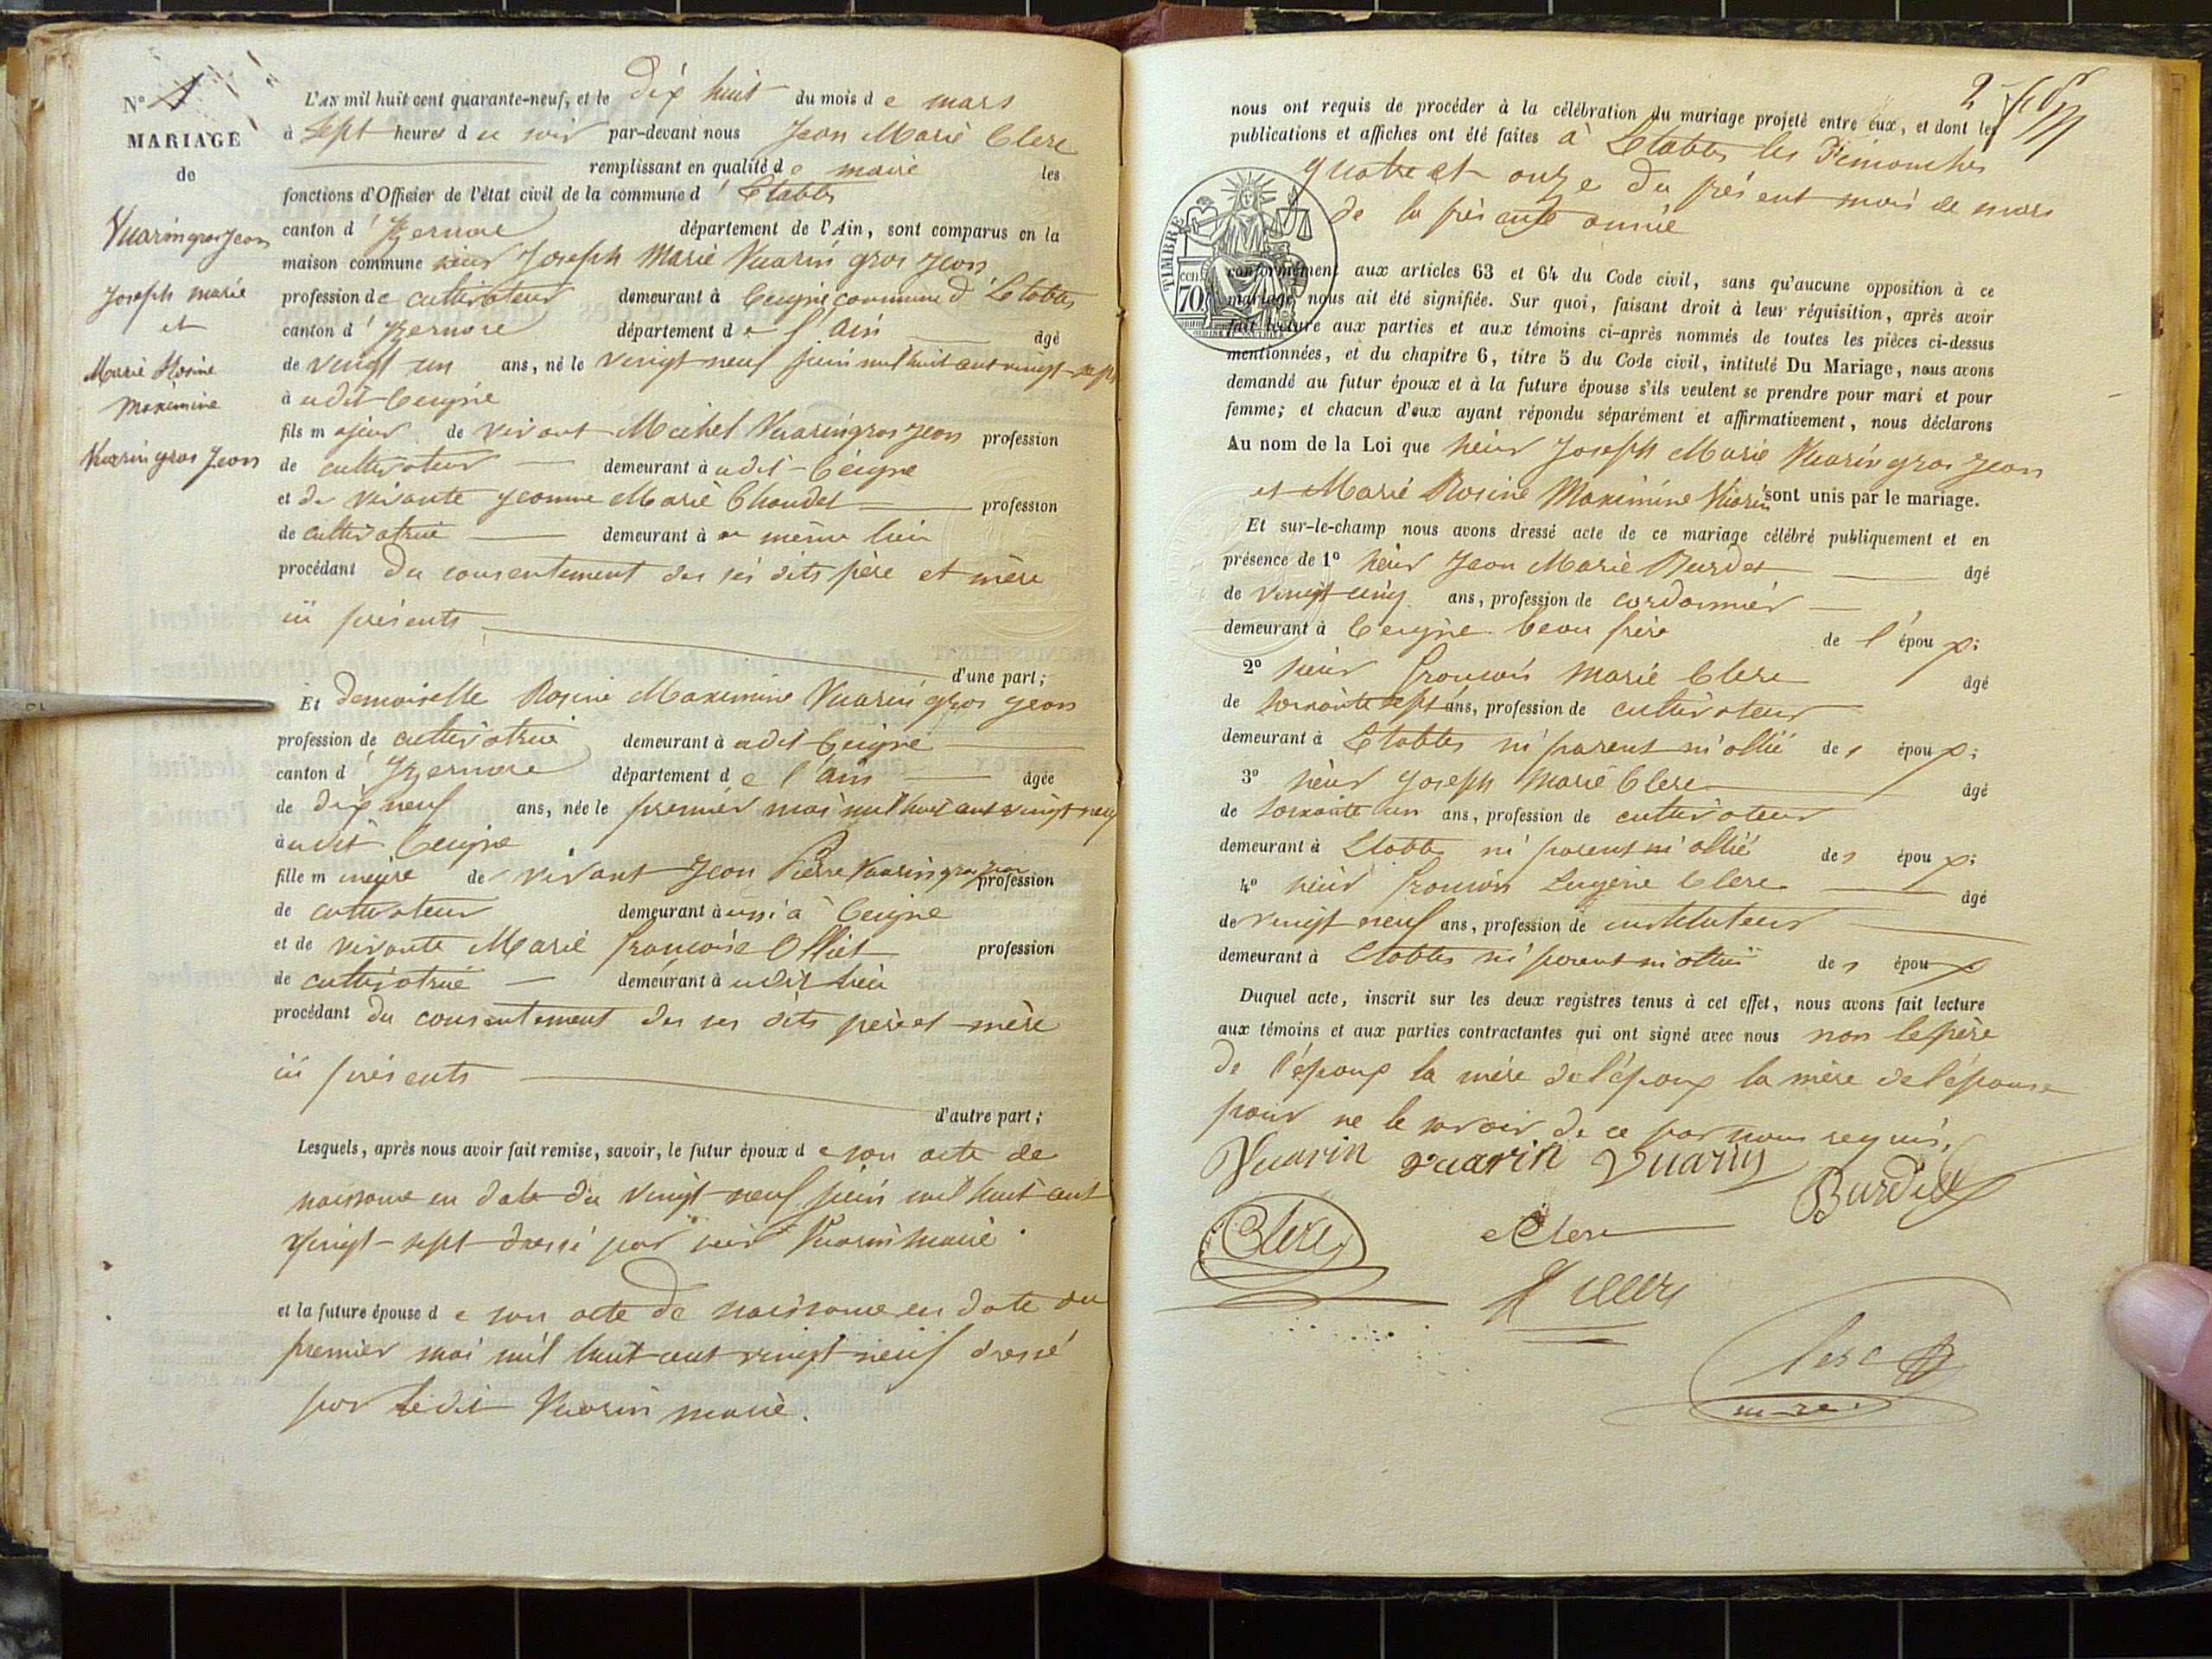 N° 1
MARIAGE
de
Vuarin gros Jean
Joseph marie
et
Marie Rosine
Maximine
Vuarin gros Jean
L'AN mil huit cent quarante-neuf, et le dix huit du mois de mars
à sept heures du soir par-devant nous Jean Marie Clerc
remplissant en qualité de maire les
fonctions d'Officier de l'état civil de la commune d' Etables
canton d' Izernore département de l'Ain, sont comparus en la
maison commune sieur Joseph Marie Vuarin gros Jean
profession de cultivateur demeurant à Ceigne commune d' Etables
canton d' Izernore département de l'Ain âgé
de vingt un ans, né le vingt neuf juin mil huit cent vingt sept
à udit Ceigne
fils majeur de vivant Michel Vuarin gros Jean profession
de cultivateur demeurant à udit Ceigne
et de vivante Jeanne Marie Chaudet profession
de cultivatrice demeurant à au même lieu
procédant du consentement des ses dits père et mère
ici présents
d'une part;
Et demoiselle Rosine Maximine Vuarin gros Jean
profession de cultivatrice demeurant à udit Ceigne
canton d' Izernore département de l'Ain âgée
de dix neuf ans, née le premier mai mil huit cent vingt neuf
à udit Ceigne
fille mineure de vivant Jean Pierre Vuarin gros Jean profession
de cultivateur demeurant à ussi à Ceigne
et de vivante Marie Françoise Olliet profession
de cultivatrice demeurant à udit lieu
procédant du consentement des ses dits père et mère
ici présents
d'autre part;
Lesquels, après nous avoir fait remise, savoir, le futur époux de son acte de
naissance en date du vingt neuf juin mil huit cent
vingt-sept dressé par sieur Vuarin maire.
et la future épouse de son acte de naissance en date du
premier mai mil huit cent vingt neuf dressé
par ledit Vuarin maire.
2
nous ont requis de procéder à la célébration du mariage projeté entre eux, et dont les
publications et affiches ont été faites à Etables les Dimanches
quatre et onze du présent mois de mars
de la présente année
TIMBRE
cen. 70
conformément aux articles 63 et 64 du Code civil, sans qu'aucune opposition à ce
mariage nous ait été signifiée. Sur quoi, faisant droit à leur réquisition, après avoir
fait lecture aux parties et aux témoins ci-après nommés de toutes les pièces ci-dessus
mentionnées, et du chapitre 6, titre 5 du Code civil, intitulé Du Mariage, nous avons
demandé au futur époux et à la future épouse s'ils veulent se prendre pour mari et pour
femme; et chacun d'eux ayant répondu séparément et affirmativement, nous déclarons
Au nom de la Loi que sieur Joseph Marie Vuarin gros Jean
et Marie Rosine Maximine Vuarin sont unis par le mariage.
Et sur-le-champ nous avons dressé acte de ce mariage célébré publiquement et en
présence de 1° sieur Jean Marie Burdet âgé
de vingt cinq ans, profession de cordonnier
demeurant à Ceigne beau frère de l'époux;
2° sieur François Marie Clerc âgé
de soixante sept ans, profession de cultivateur
demeurant à Etables ni parent ni allié des époux;
3° sieur Joseph Marie Clerc âgé
de soixante un ans, profession de cultivateur
demeurant à Etables ni parent ni allié des époux;
4° sieur François Eugène Clerc âgé
de vingt neuf ans, profession de instituteur
demeurant à Etables ni parent ni allié des époux
Duquel acte, inscrit sur les deux registres tenus à cet effet, nous avons fait lecture
aux témoins et aux parties contractantes qui ont signé avec nous non le père
de l'époux la mère de l'époux la mère de l'épouse
pour ne le savoir de ce par nous requis.
Vuarin vuarin Vuarin
Burdet
Clerc Clerc
Clerc
maire